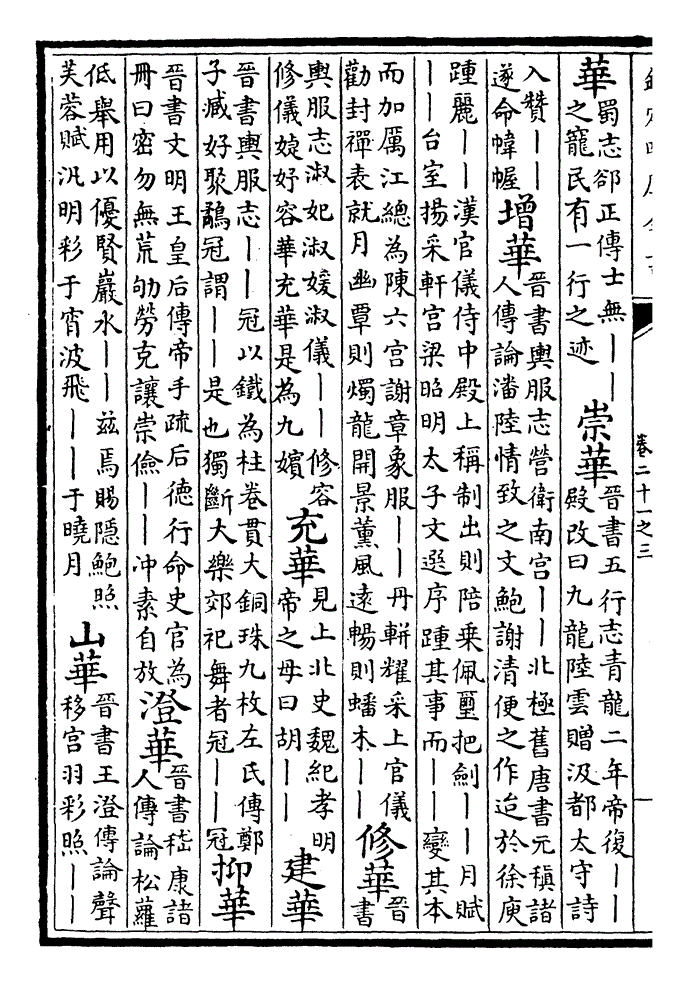 卷二十一之三
華
蜀志郤正傳士無丨丨
之寵民有一行之迹
崇華
晉書五行志青龍二年帝復丨丨
殿改曰九龍陸雲贈汲都太守詩
入贊丨丨
遂命幃幄
增華
晉書輿服志營衛南宮丨丨北極舊唐書元稹諸
人傳論潘陸情致之文鮑謝清便之作迨於徐庾
踵麗丨丨漢官儀侍中殿上稱制出則陪乘佩璽把劍丨丨月賦
丨丨台室揚采軒宮梁昭明太子文選序踵其事而丨丨變其本
而加厲江總為陳六宮謝章象服丨丨丹軿耀采上官儀
勸封禪表就月幽覃則燭龍開景薰風遠暢則蟠木丨丨
修華
晉
書
輿服志淑妃淑媛淑儀丨丨修容
修儀婕妤容華充華是為九嬪
充華
見上北史魏紀孝明
帝之母曰胡丨丨
建華
晉書輿服志丨丨冠以鐵為柱卷貫大銅珠九枚左氏傳鄭
子臧好聚鷸冠謂丨丨是也獨斷大樂郊祀舞者冠丨丨冠
抑華
晉書文明王皇后傳帝手疏后德行命史官為
冊曰密勿無荒劬勞克讓崇儉丨丨冲素自放
澄華
晉書嵇康諸
人傳論松蘿
低舉用以優賢巖水丨丨茲焉賜隱鮑照
芙蓉賦汎明彩于宵波飛丨丨于曉月
山華
晉書王澄傳論聲
移宮羽彩照丨丨